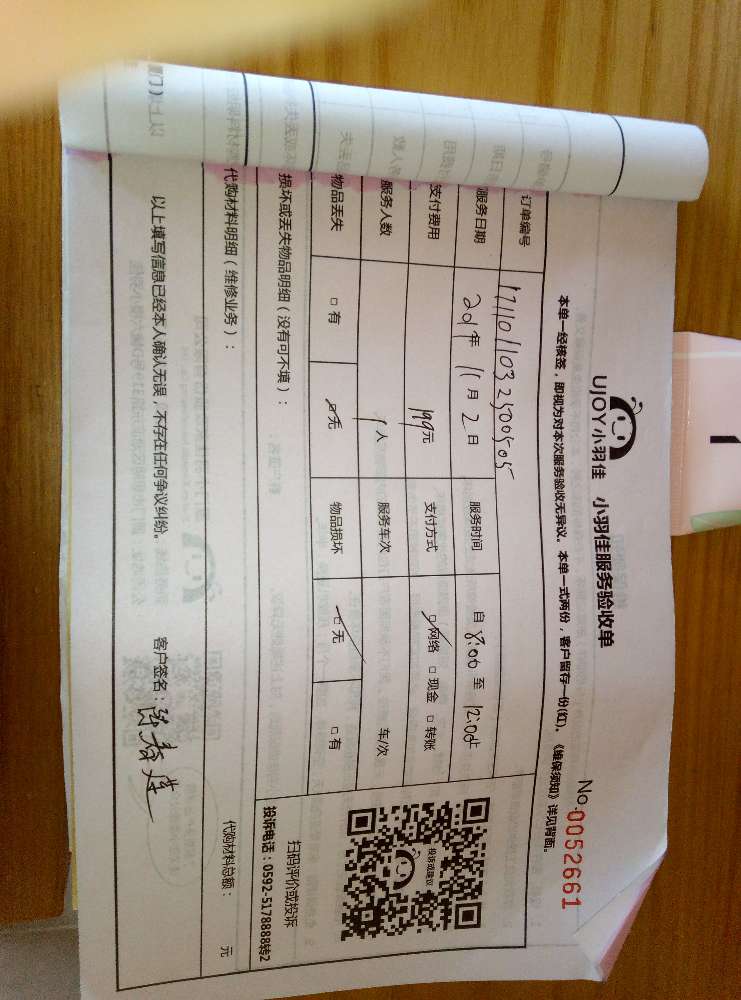 UJOY小羽佳 小羽佳服务验收单
No.0052661
本单一经核签，即视为对本次服务验收无异议。本单一式两份，客户留存一份(红)。《维保须知》详见背面。
订单编号 1711011032500505
服务日期 2017年 11月 2日 服务时间 自 8:00 至 12:00
支付费用 199元 支付方式 网络 现金 转账
服务人数 1人 服务车次 车/次
物品丢失 有 无 物品损坏 无 有
损坏或丢失物品明细（没有可不填）：
投诉或建议
扫码评价或投诉
投诉电话：0592-5178888转2
代购材料明细（维修业务）：
代购材料总额： 元
以上填写信息已经本人确认无误，不存在任何争议纠纷。 客户签名：
1